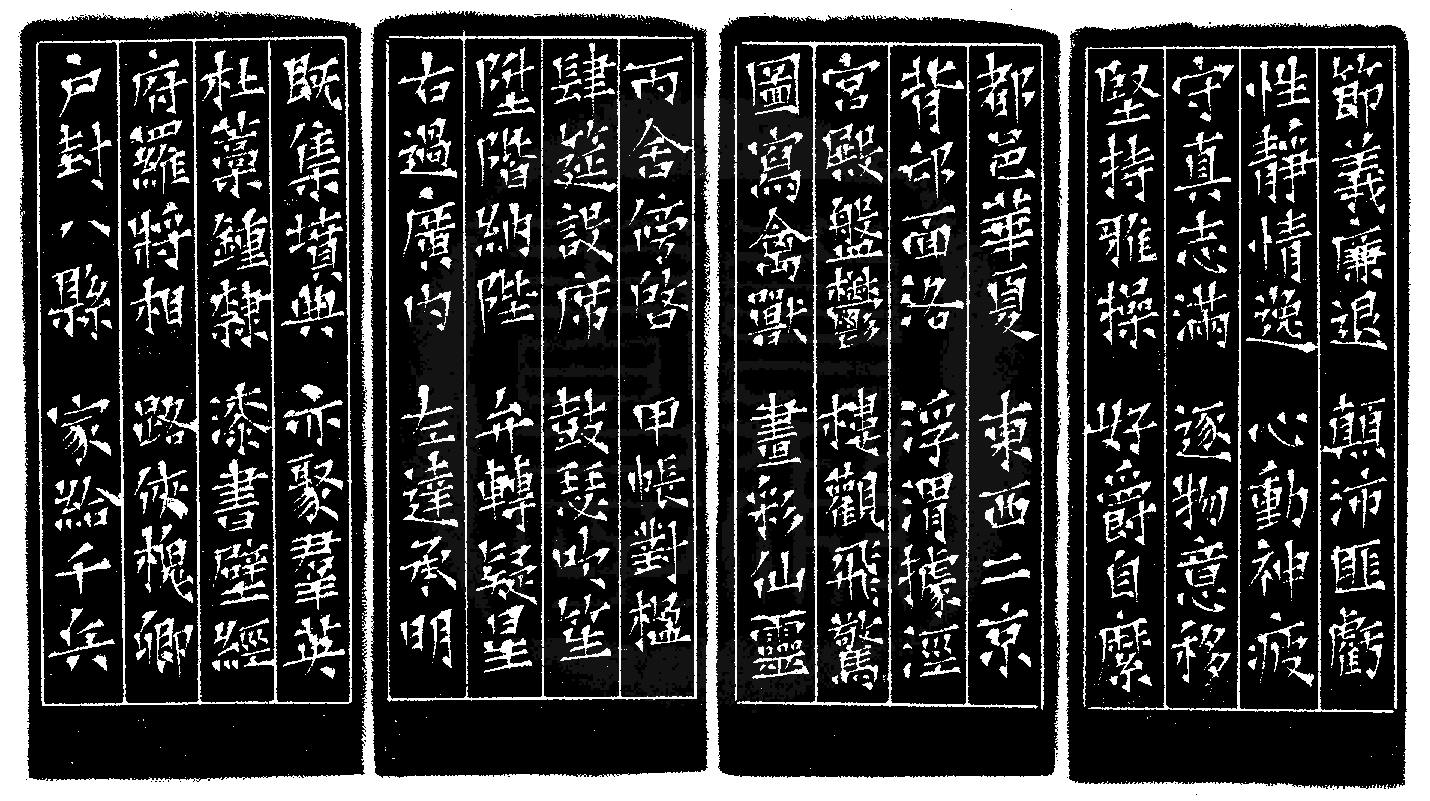 節義廉退 顛沛匪虧
性靜情逸 心動神疲
守真志滿 逐物意移
堅持雅操 好爵自縻
都邑華夏 東西二京
背邙面洛 浮渭據涇
宮殿盤鬱 樓觀飛驚
圖寫禽獸 畫彩仙靈
丙舍傍啓 甲帳對楹
肆筵設席 鼓瑟吹笙
陞階納陛 弁轉疑星
右通廣內 左達承明
既集墳典 亦聚羣英
杜藁鍾隸 漆書壁經
府羅將相 路俠槐卿
户封八縣 家給千兵